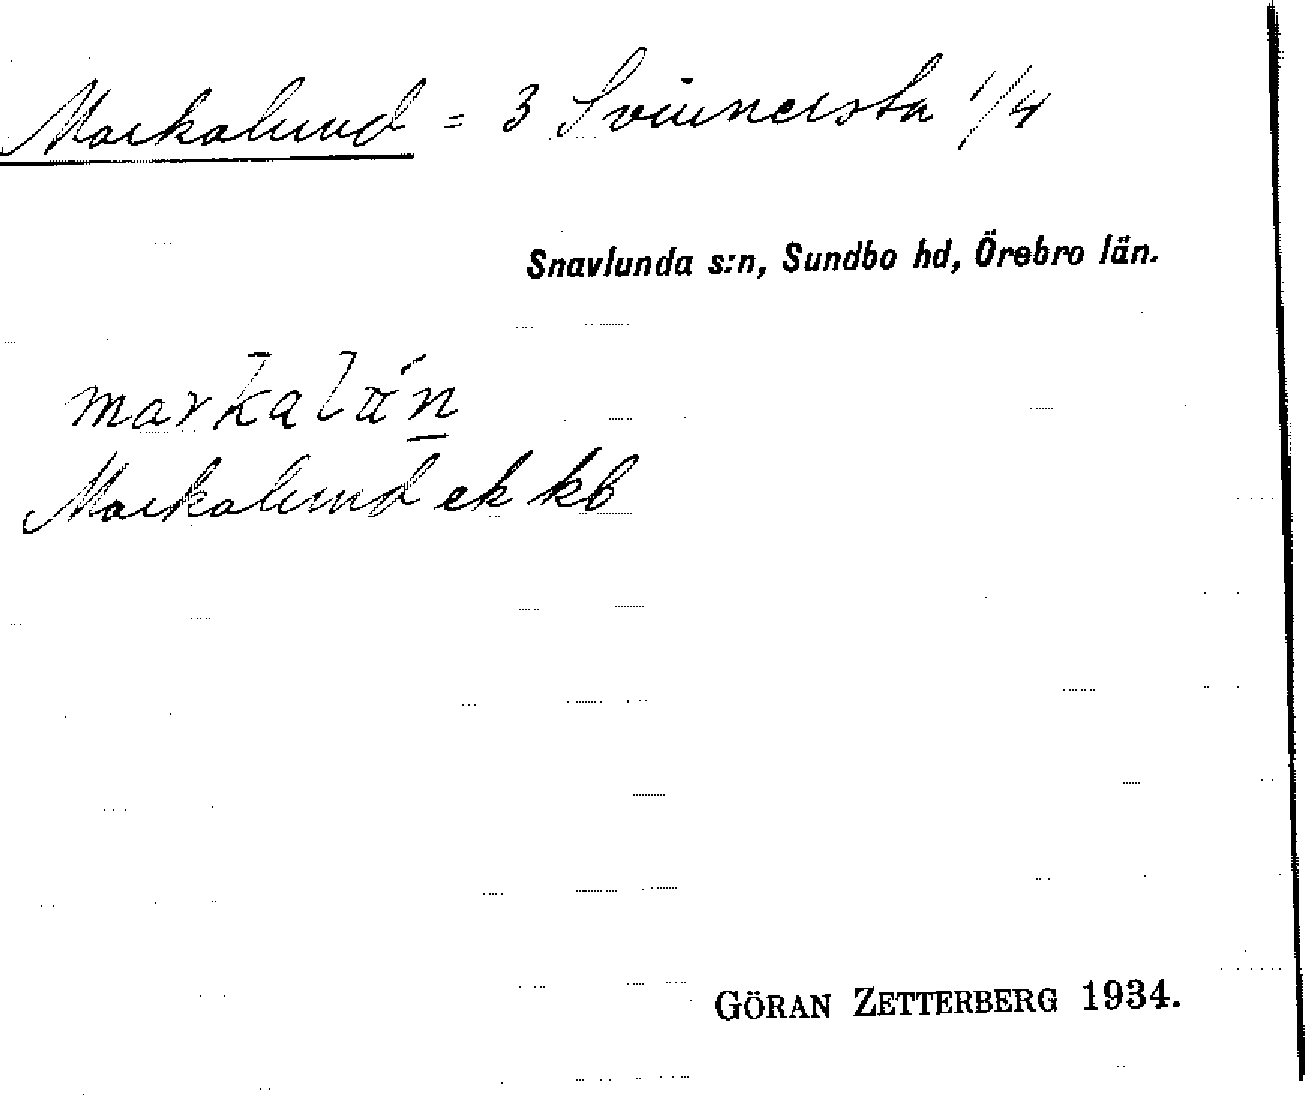 Markalund = 3 Svinnersta 1/4
Snavlunda s:n, Sundbo hd, Örebro län.
markalán
Markalund ek kb
GÖRAN ZETTERBERG 1934.